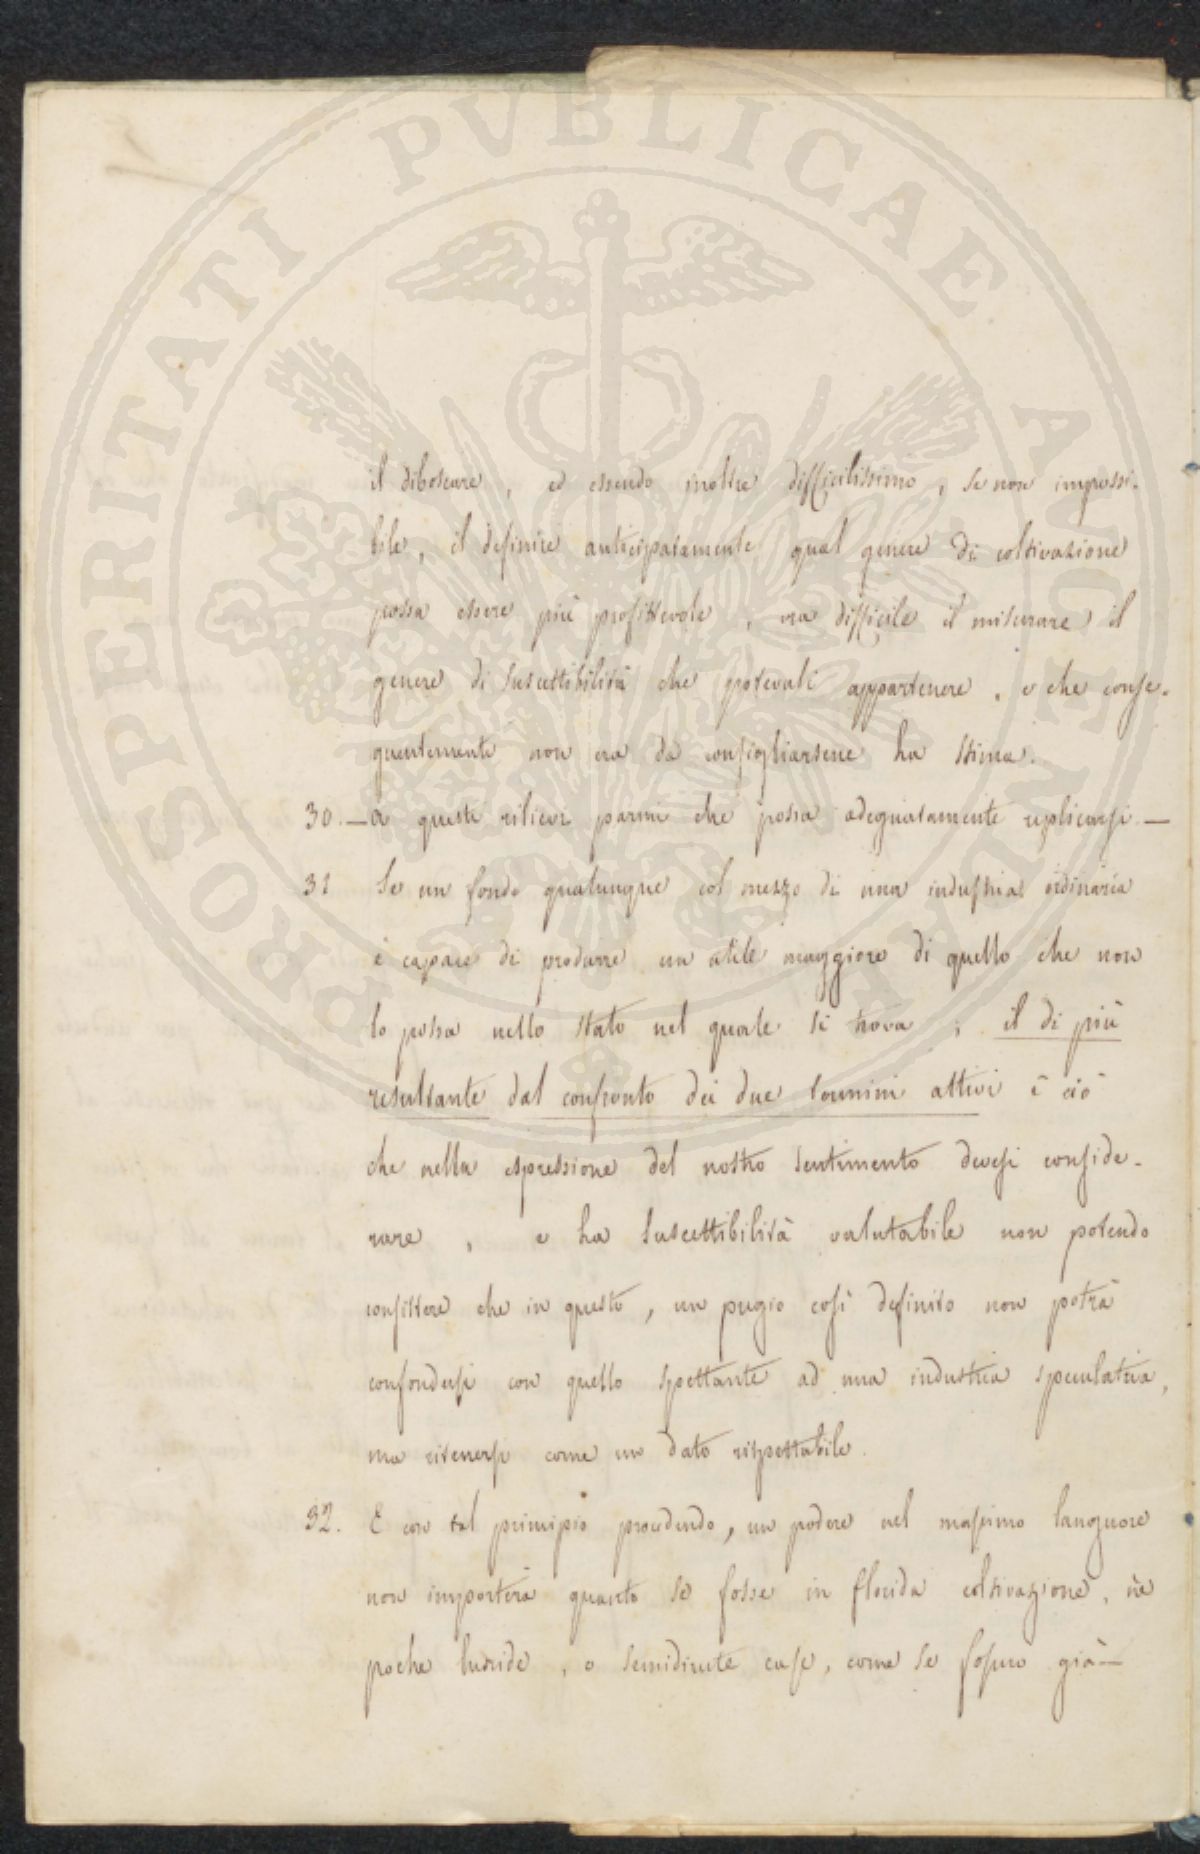 PROSPERITATI PVBLICAE AVGENDAE
il diboscare, ed essendo inoltre difficilissimo, se non impossi-
bile, il definire anticipatamente qual genere di coltivazione
possa essere più profittevole, era difficile il misurare il
genere di suscettibilità che potevali appartenere, e che conse-
guentemente non era da consigliarsene la stima.
30.— A questi rilievi parmi che possa adeguatamente replicarsi —
31 Se un fondo qualunque col mezzo di una industria ordinaria
è capace di produrre un utile maggiore di quello che non
lo possa nello stato nel quale si trova; il di più
resultante dal confronto dei due termini attivi è ciò
che nella espressione del nostro sentimento devesi conside-
rare, e la suscettibilità valutabile non potendo
consistere che in questo, un pregio così definito non potrà
confondersi con quello spettante ad una industria speculativa,
ma ritenersi come un dato rispettabile.
32. E con tal principio procedendo, un podere nel massimo languore
non importerà quanto se fosse in florida coltivazione, nè
poche luride, o semidirute case, come se fossero già—